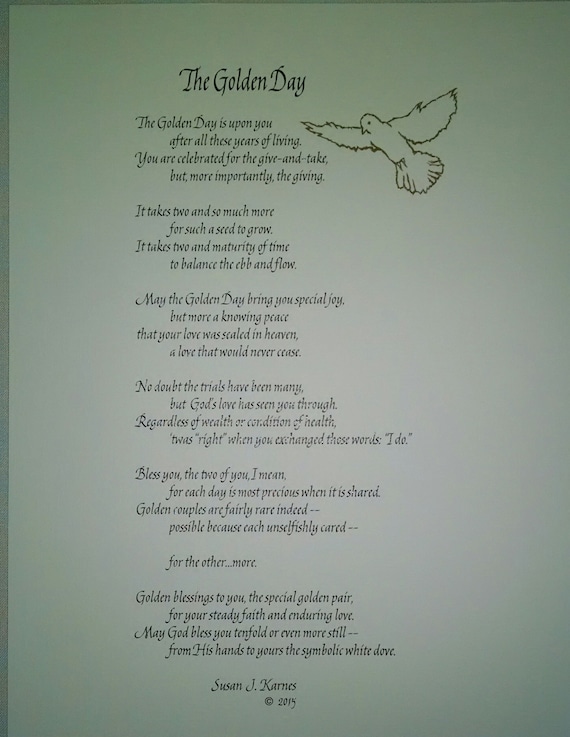 The Golden Day
The Golden Day is upon you
after all these years of living.
You are celebrated for the give-and-take,
but, more importantly, the giving.
It takes two and so much more
for such a seed to grow.
It takes two and maturity of time
to balance the ebb and flow.
May the Golden Day bring you special joy,
but more a knowing peace
that your love was sealed in heaven,
a love that would never cease.
No doubt the trials have been many,
but God's love has seen you through.
Regardless of wealth or condition of health,
'twas "right" when you exchanged those words: "I do."
Bless you, the two of you, I mean,
for each day is most precious when it is shared.
Golden couples are fairly rare indeed --
possible because each unselfishly cared --
for the other...more.
Golden blessings to you, the special golden pair,
for your steady faith and enduring love.
May God bless you tenfold or even more still --
from His hands to yours the symbolic white dove.
Susan J. Karnes
© 2015